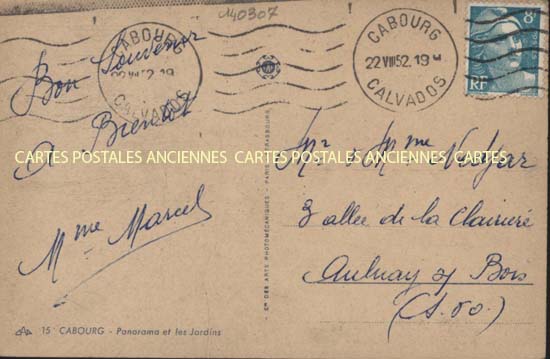 140307
CABOURG
22 VIII 52. 19 H
CALVADOS
CABOURG
22 VIII 52. 19
CALVADOS
8F
RF
Bon Souvenir
A Bientôt
Mme Marcel
CARTES POSTALES ANCIENNES CARTES POSTALES ANCIENNES CARTES POSTALES ANCIENNES
Mr & Mme
3 allée de la Clairière
Aulnay s/ Bois
(S. &. O.)
Cie DES ARTS PHOTOMÉCANIQUES - PARIS - STRASBOURG
15 CABOURG - Panorama et les Jardins